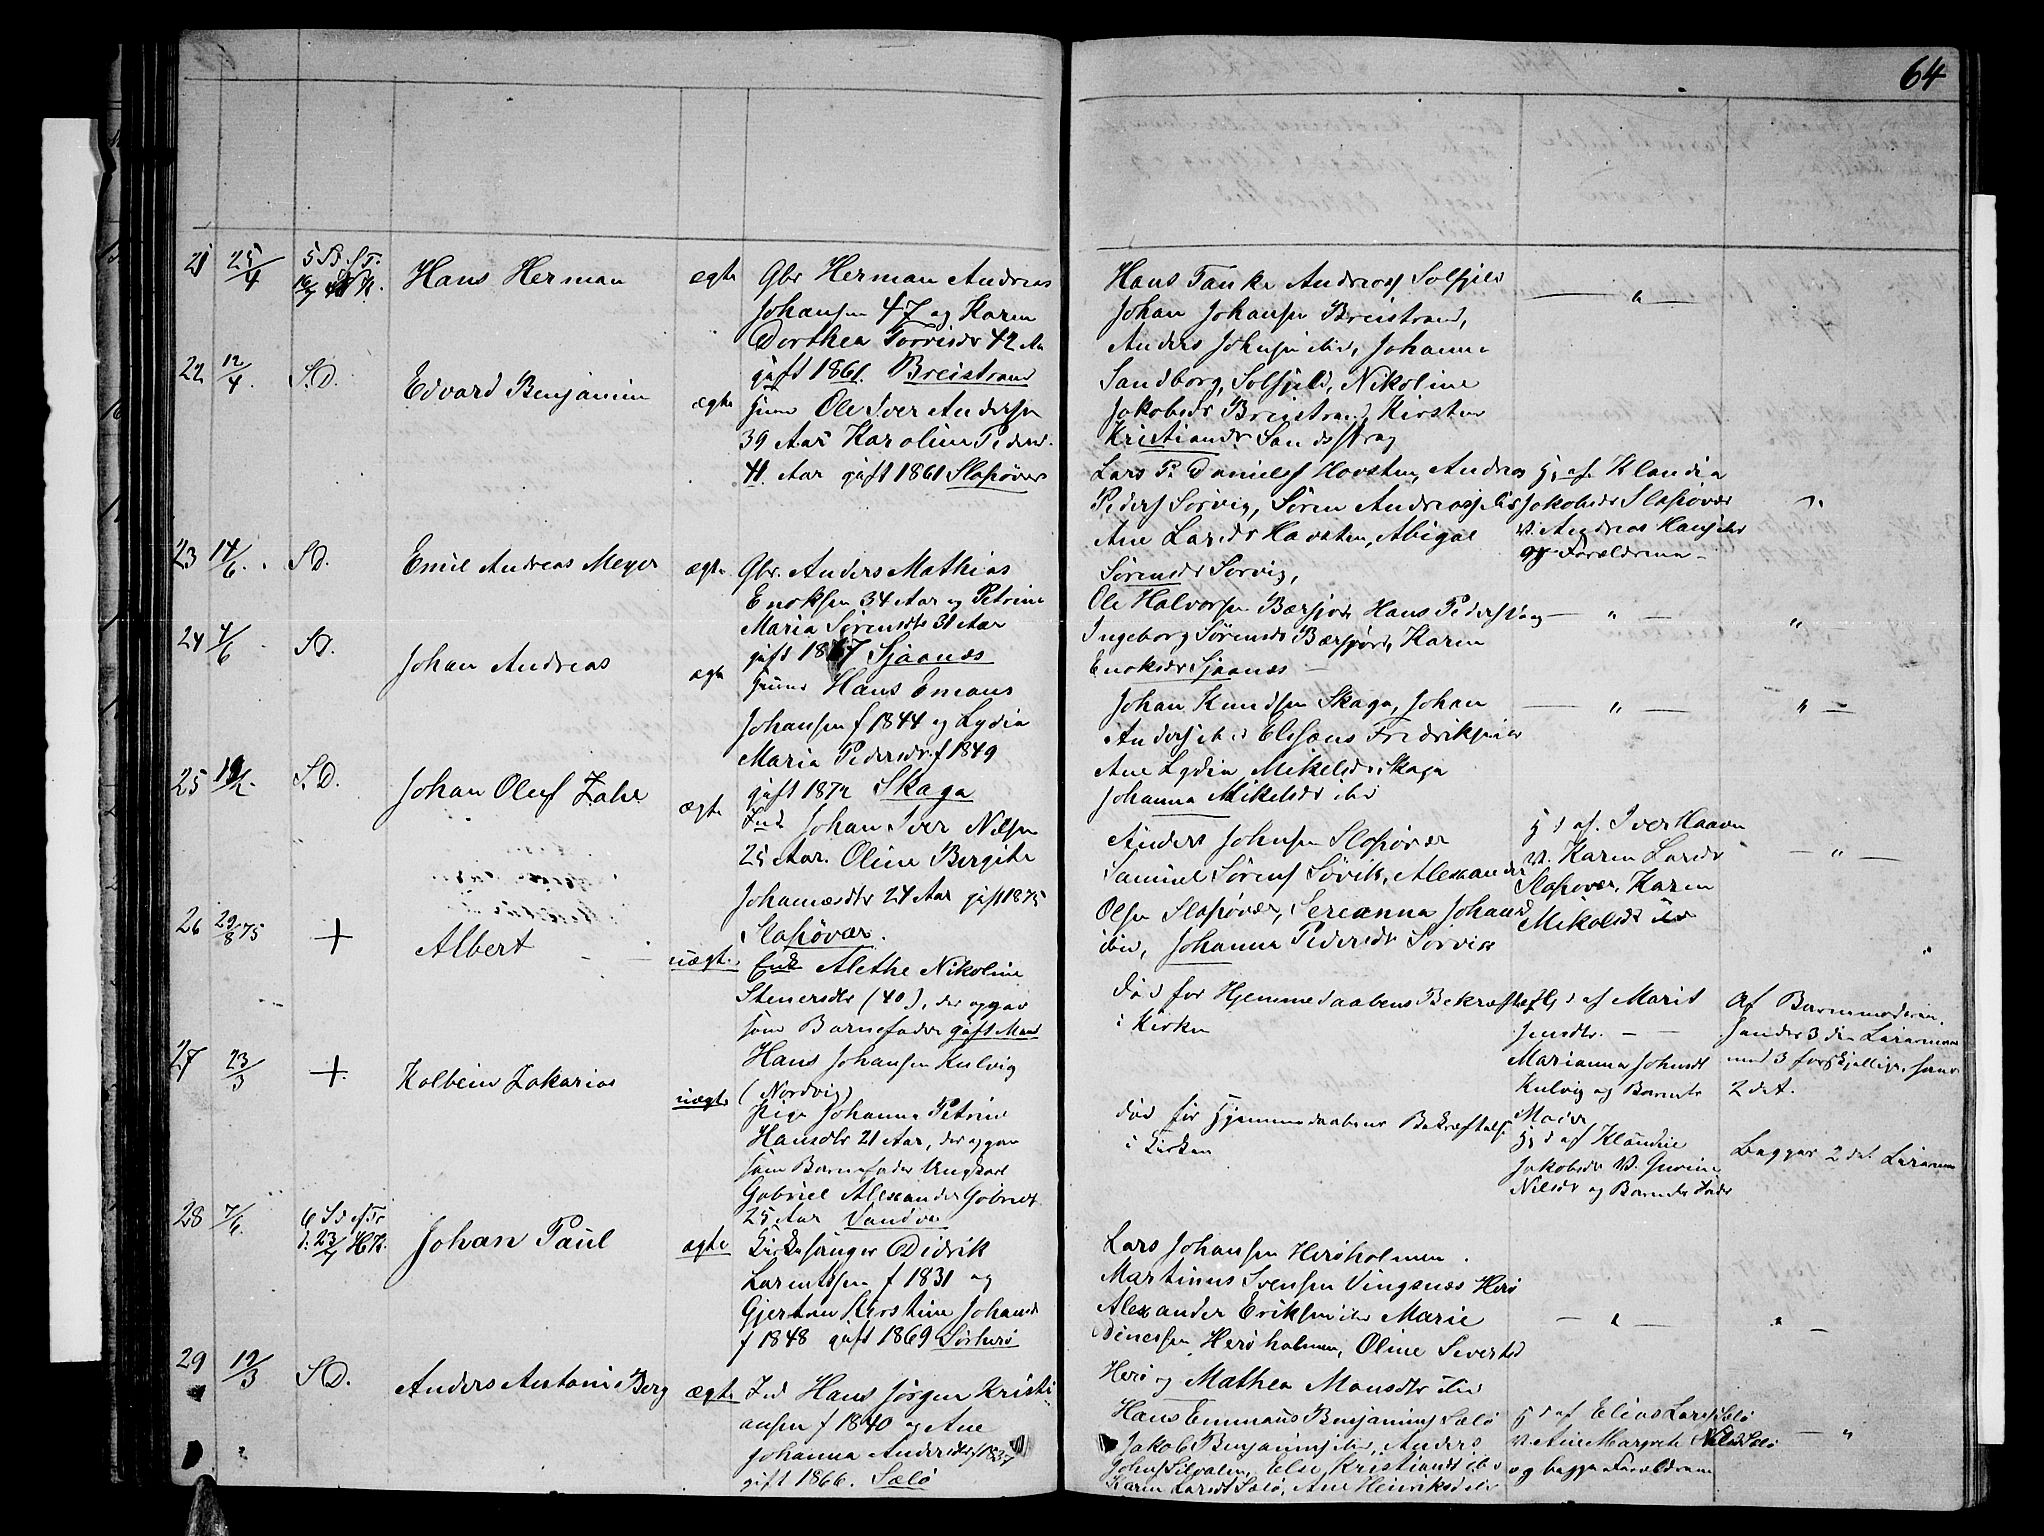 64
21 25/4 Hans Herman ægte Gbr Herman Andreas
Johansen 47 og Karen
Dorthea 42 Aar
gift 1861. Breistrand
Hans Tanke Andreass Solfjeld
Johan Johansen Breistrand,
Anders Johnsen ibid, Johanna
Sandborg, Solfjeld, Nikoline
Jakobsdr Breistrand, Kirsten
Kristiansdr
22 12/4. S.D. Edvard Benjamin ægte
Ole Iver Andersen
39 Aar Karoline Peders.
41 Aar gift 1861 Slapøvær
Lars P. Daniels Havsten, Andreas
Peders Sørvig, Søren Andreass ibid
Ane Larsdr Havsten, Abigael
Sørensdr Sørvig,
Hj. af Klaudia
Jakobsdr Slapøvær
V. Andreas Hans ibid
og Forældrene
23 14/6. S.D. Emil Andreas Meyer ægte Gbr. Anders Mathias
Enoksen 34 Aar og Petrine
Maria Sørensdtr 31 Aar
gift 1867 Sjaanæs
Ole Halvorsen Bærfjord Hans Peders
Ingeborg Sørensdr Bærfjord, Karen
Enoksdr Sjaanæs
24 4/6 S.D. Johan Andreas ægte
Hans Emaus
Johansen f 1844 og Lydia
Maria Pedersdr f 1849
gift 1872 Skaga
Johan Knudsen Skaga, Johan
Anders ibid Elesæus Fredriksen ibid
Ane Lydia Mikelsdr Skaga
Johanna Mikelsdr ibid
25 S.D. Johan Oluf Zahl ægte
Ind Johan Iver Nilsen
25 Aar. Oline Bergite
Johannesdtr 24 Aar gift 1875
Slapøvær.
Anders Johnsen Slapøvær
Samuel Sørens Sørvik, Alexander
Olsen Slapøvær, Sereanna Johansd
ibid, Johanna Pedersdr Sørvik
Hj d af. Iver Haavn
V. Karen Larsdr
Slapøvær, Karen
Mikelsdr ibd
26 29/8 75 + Albert uægte
Enke Alethe Nikoline
Stenersdtr (40), der opgav
som Barnefader gift Mand
Hans Johansen Kulvig
(Nordvig)
Død før Hjemmedaabens Bekræftelse
i Kirken
Hj d af Marit
Jensdtr.
Marianna Johnsdt
Kulvig og Barnets
Moder
Af Barnemoderen.
hendes 3die Leiermaal
med 3 forskjellige, hans
2det.
27 23/3 + Kolbein Zakarias uægte
Pige Johanna Petrine
Hansdtr 21 Aar, der opgav
som Barnefader Ungkarl
Gabriel Alexander Gabriels
25 Aar Vandve
Død før Hjemmedaabens Bekræftelse
i Kirken
Hj d af Klaudie
Jakobsdr V.
Nilsdr og Barnets Fader
Begges 2det Leiermaal
28 7/6. Johan Paul ægte
Kirkesanger Didrik
Lorentssen f 1831 og
Gjertine Kirstine Johansd
f 1848 gift 1869 Sørherø
Lars Johansen Herøholmen.
Martinus Svensen Vingsnæs Herø
Alexander Eriksen ibid Marie
Dinessen Herøholmen, Oline Sivertsd
Herø og Mathea Monsdtr ibd
29 19/3 S.D. Anders Antoni Berg ægte Ind Hans Jørgen Kristi
ansen f 1840 og Ane
Johanna Andersdtr f 1837
gift 1866. Sælø
Hans Emmaus Benjamins Sælø
Jakob Benjamins ibid, Anders
Johns Silvalen, Else Kristiansd ibd
Karen Larsdt Sælø, Ane Henriksd ibd
Hj d af Elias Lars Sælø
V. Ane Margrete Nilsd Sælø
og begge Forældrene